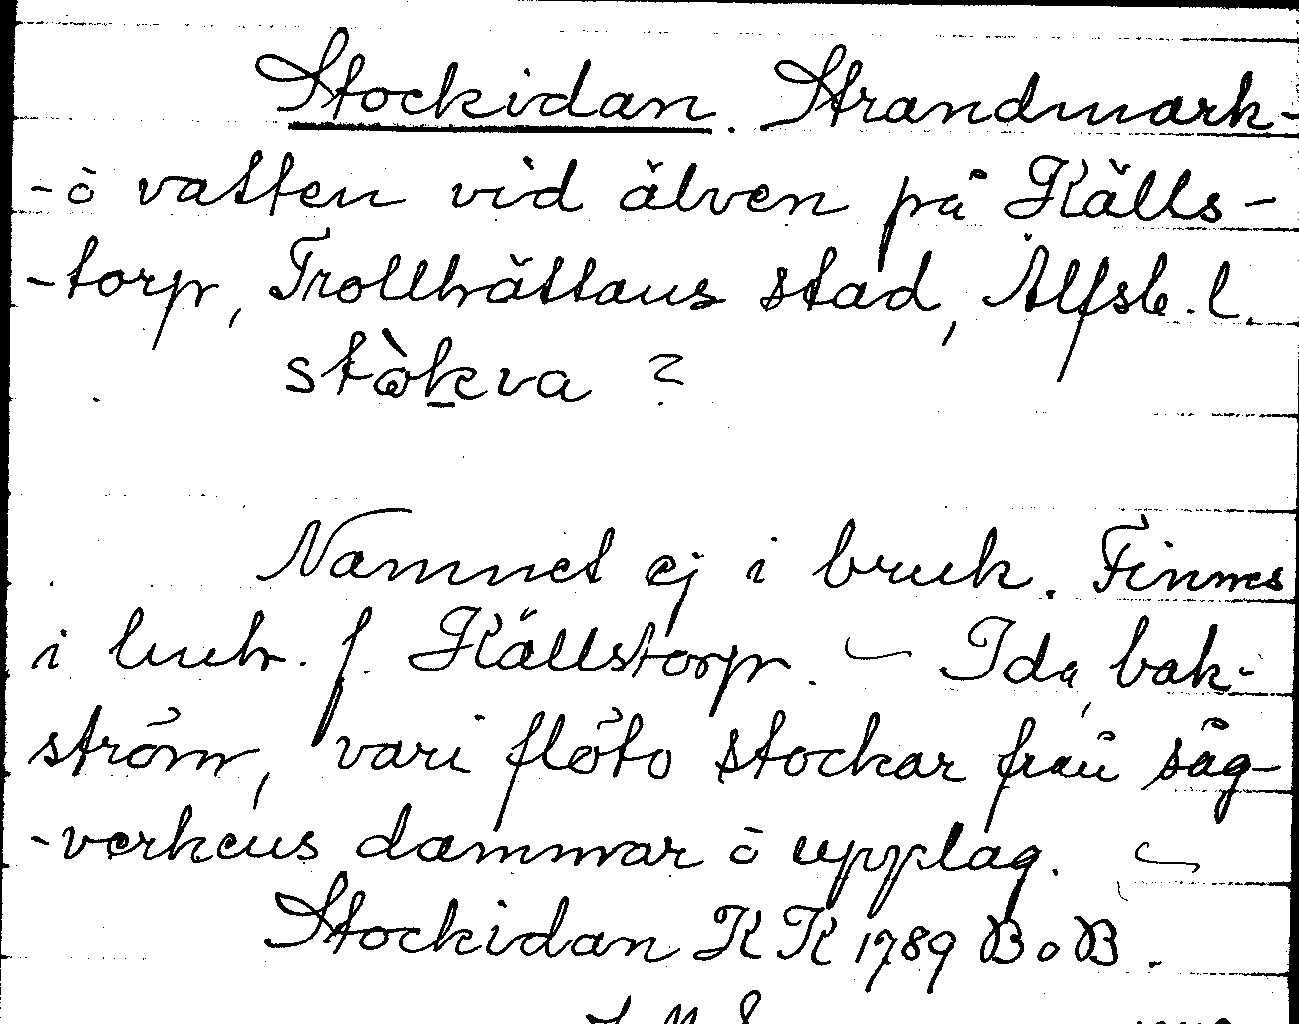 Stockidan. Strandmark-
-ō vatten vid älven på Källs-
-torp, Trollhättans stad, Älfsb. l.
stòkva ?
Namnet ej i bruk. Finnes
i luuk. f. Källstorp. — Ida, bak-
ström, vari flöto stockar från såg-
-verkens dammar ō upplag. —
Stockidan KK 1789 BoB.